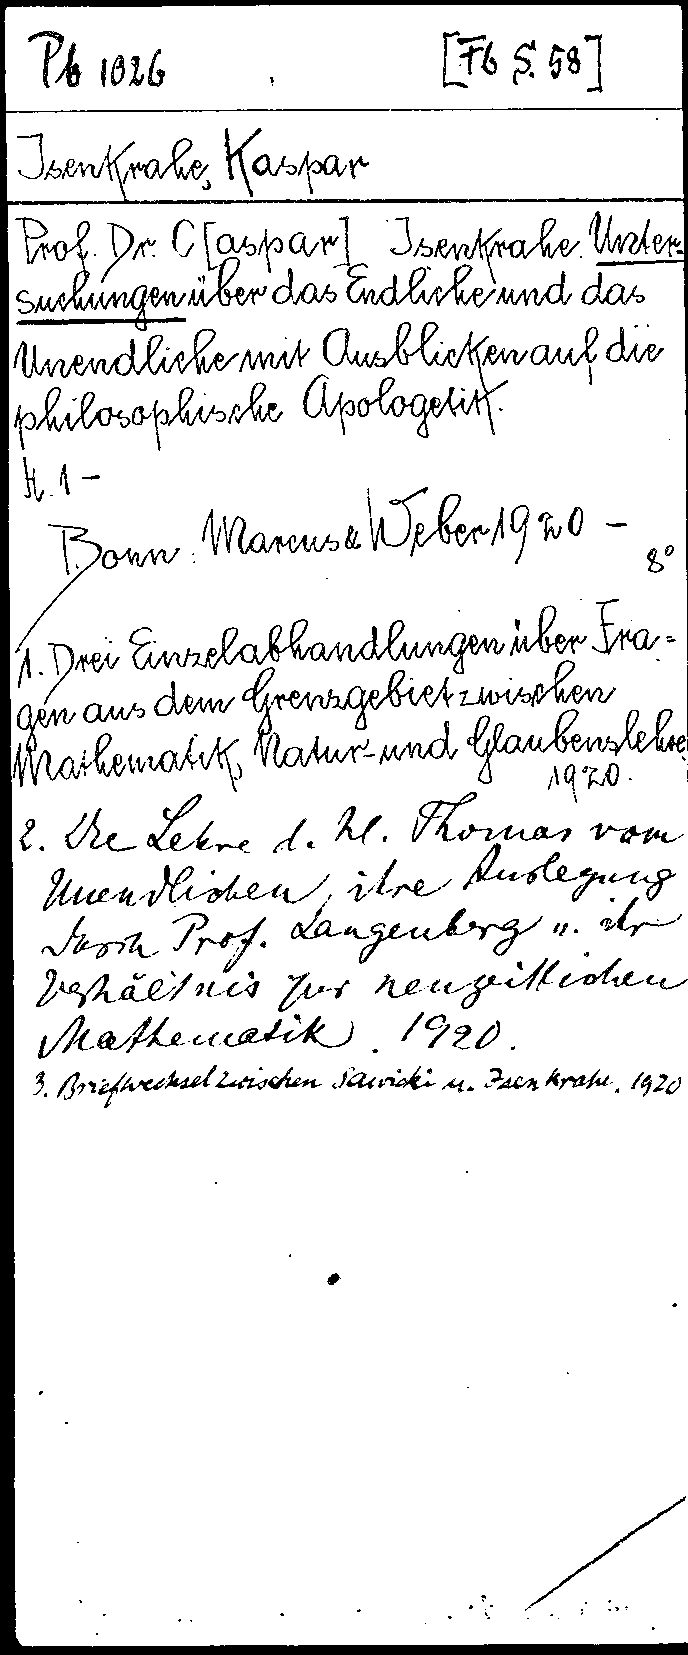 Pb 1026 [Fb S. 58]
Isenkrahe, Kaspar
Prof. Dr. C[aspar] Isenkrahe. Unter-
suchungen über das Endliche und das
Unendliche mit Ausblicken auf die
philosophische Apologetik.
H. 1 –
Bonn: Marcus & Weber 1920 –
8°
1. Drei Einzelabhandlungen über Fra=
gen aus dem Grenzgebiet zwischen
Mathematik, Natur- und Glaubenslehre
1920.
2. Die Lehre d. hl. Thomas vom
Unendlichen, ihre Auslegung
durch Prof. Langenberg u. ihr
Verhältnis zur neuzeitlichen
Mathematik. 1920.
3. Briefwechsel zwischen Sawicki u. Isenkrahe. 1920